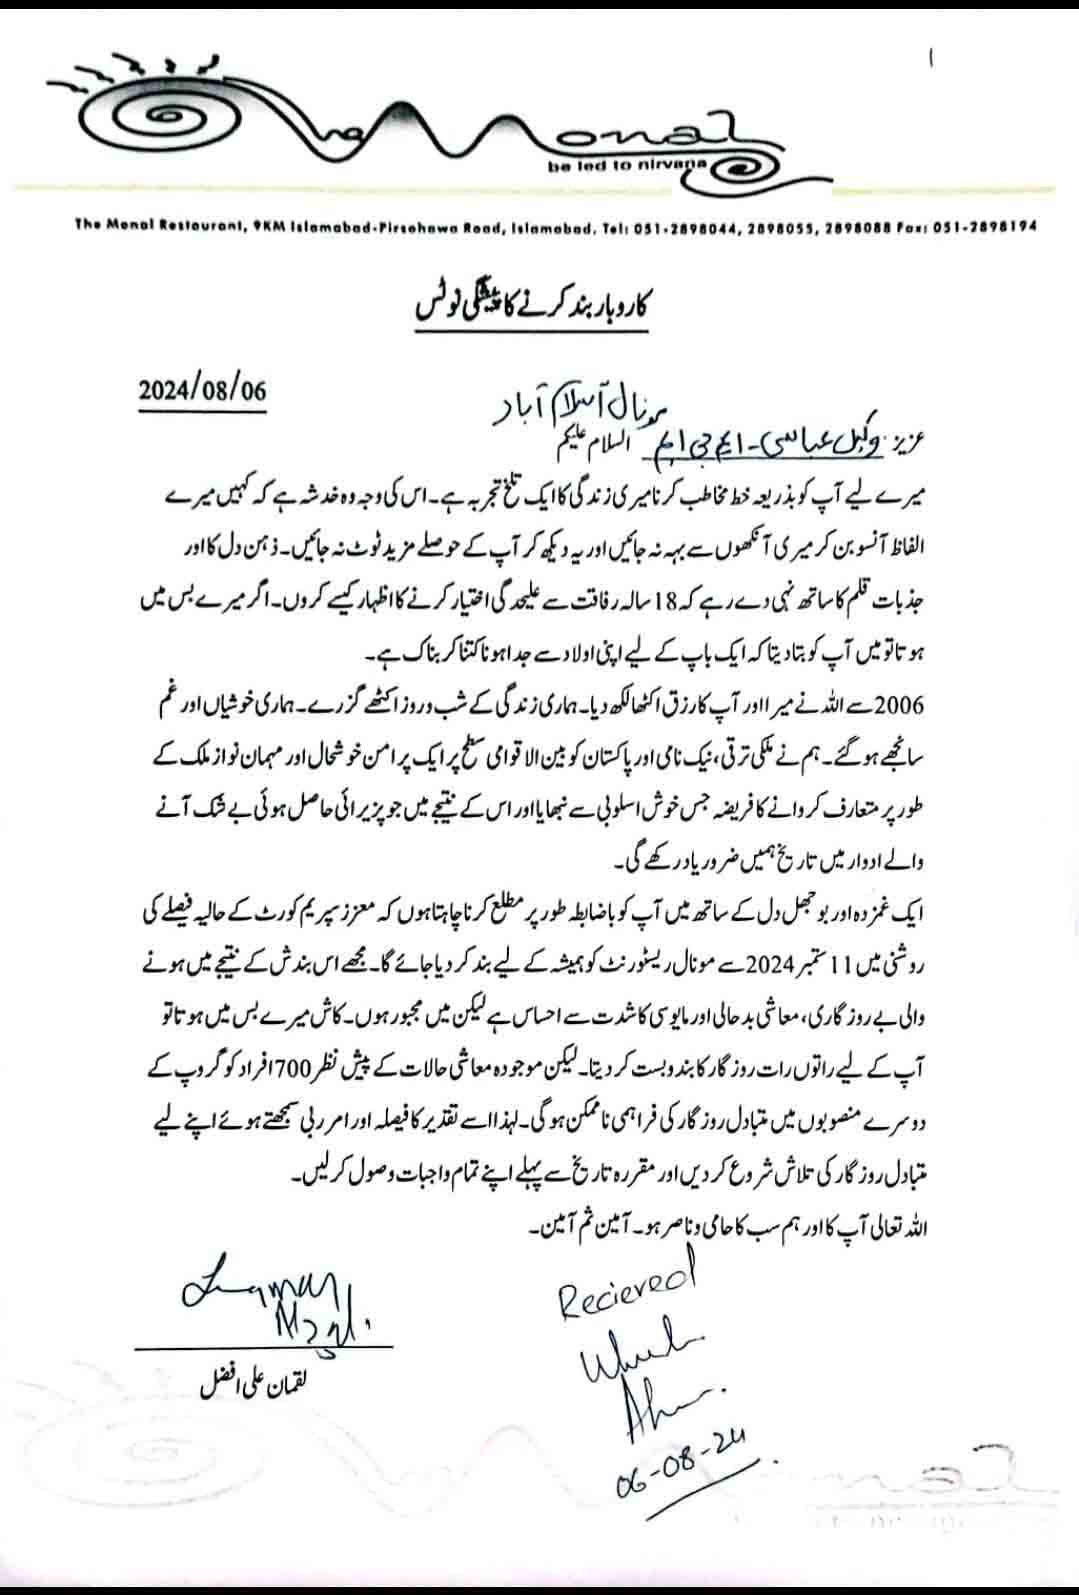 ۱
The Monal
be led to nirvana
The Monal Restaurant, 9KM Islamabad-Pirsohawa Road, Islamabad. Tel: 051-2898044, 2898055, 2898088 Fax: 051-2898194
کاروبار بند کرنے کا پیشگی نوٹس
2024/08/06
مونال اسلام آباد
عزیز وکیل عباسی۔ ایم جی ایم السلام علیکم
میرے لیے آپ کو بذریعہ خط مخاطب کرنا میری زندگی کا ایک تلخ تجربہ ہے۔ اس کی وجہ وہ خدشہ ہے کہ کہیں میرے
الفاظ آنسو بن کر میری آنکھوں سے بہہ نہ جائیں اور یہ دیکھ کر آپ کے حوصلے مزید ٹوٹ نہ جائیں۔ ذہن دل کا اور
جذبات قلم کا ساتھ نہی دے رہے کہ 18 سالہ رفاقت سے علیحدگی اختیار کرنے کا اظہار کیسے کروں۔ اگر میرے بس میں
ہوتا تو میں آپ کو بتا دیتا کہ ایک باپ کے لیے اپنی اولاد سے جدا ہونا کتنا کربناک ہے۔
2006 سے اللہ نے میرا اور آپ کا رزق اکٹھا لکھ دیا۔ ہماری زندگی کے شب و روز اکٹھے گزرے۔ ہماری خوشیاں اور غم
سانجھے ہو گئے۔ ہم نے ملکی ترقی، نیک نامی اور پاکستان کو بین الاقوامی سطح پر ایک پر امن خوشحال اور مہمان نواز ملک کے
طور پر متعارف کروانے کا فریضہ جس خوش اسلوبی سے نبھایا اور اس کے نتیجے میں جو پزیرائی حاصل ہوئی بے شک آنے
والے ادوار میں تاریخ ہمیں ضرور یاد رکھے گی۔
ایک غمزدہ اور بوجھل دل کے ساتھ میں آپ کو باضابطہ طور پر مطلع کرنا چاہتا ہوں کہ معزز سپریم کورٹ کے حالیہ فیصلے کی
روشنی میں 11 ستمبر 2024 سے مونال ریسٹورنٹ کو ہمیشہ کے لیے بند کر دیا جائے گا۔ مجھے اس بندش کے نتیجے میں ہونے
والی بے روزگاری، معاشی بدحالی اور مایوسی کا شدت سے احساس ہے لیکن میں مجبور ہوں۔ کاش میرے بس میں ہوتا تو
آپ کے لیے راتوں رات روزگار کا بندوبست کر دیتا۔ لیکن موجودہ معاشی حالات کے پیش نظر 700 افراد کو گروپ کے
دوسرے منصوبوں میں متبادل روزگار کی فراہمی ناممکن ہو گی۔ لہذا اسے تقدیر کا فیصلہ اور امر ربی سمجھتے ہوئے اپنے لیے
متبادل روزگار کی تلاش شروع کر دیں اور مقررہ تاریخ سے پہلے اپنے تمام واجبات وصول کر لیں۔
اللہ تعالی آپ کا اور ہم سب کا حامی و ناصر ہو۔ آمین ثم آمین۔
Recieved
06-08-24
لقمان علی افضل